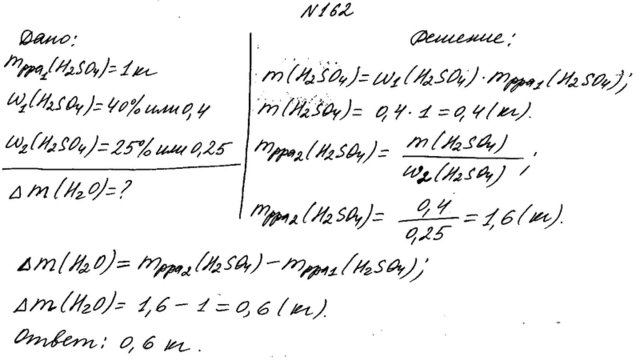 N162
Дано:
mрра1(H2SO4)=1 кг
ω1(H2SO4)=40% или 0,4
ω2(H2SO4)=25% или 0,25
Δm(H2O)=?
Решение:
m(H2SO4)=ω1(H2SO4)·mрра1(H2SO4);
m(H2SO4)= 0,4·1=0,4(кг).
mрра2(H2SO4)= m(H2SO4)
ω2(H2SO4) ;
mрра2(H2SO4)= 0,4
0,25 =1,6(кг).
Δm(H2O)=mрра2(H2SO4)−mрра1(H2SO4);
Δm(H2O)=1,6−1=0,6(кг).
Ответ: 0,6 кг.